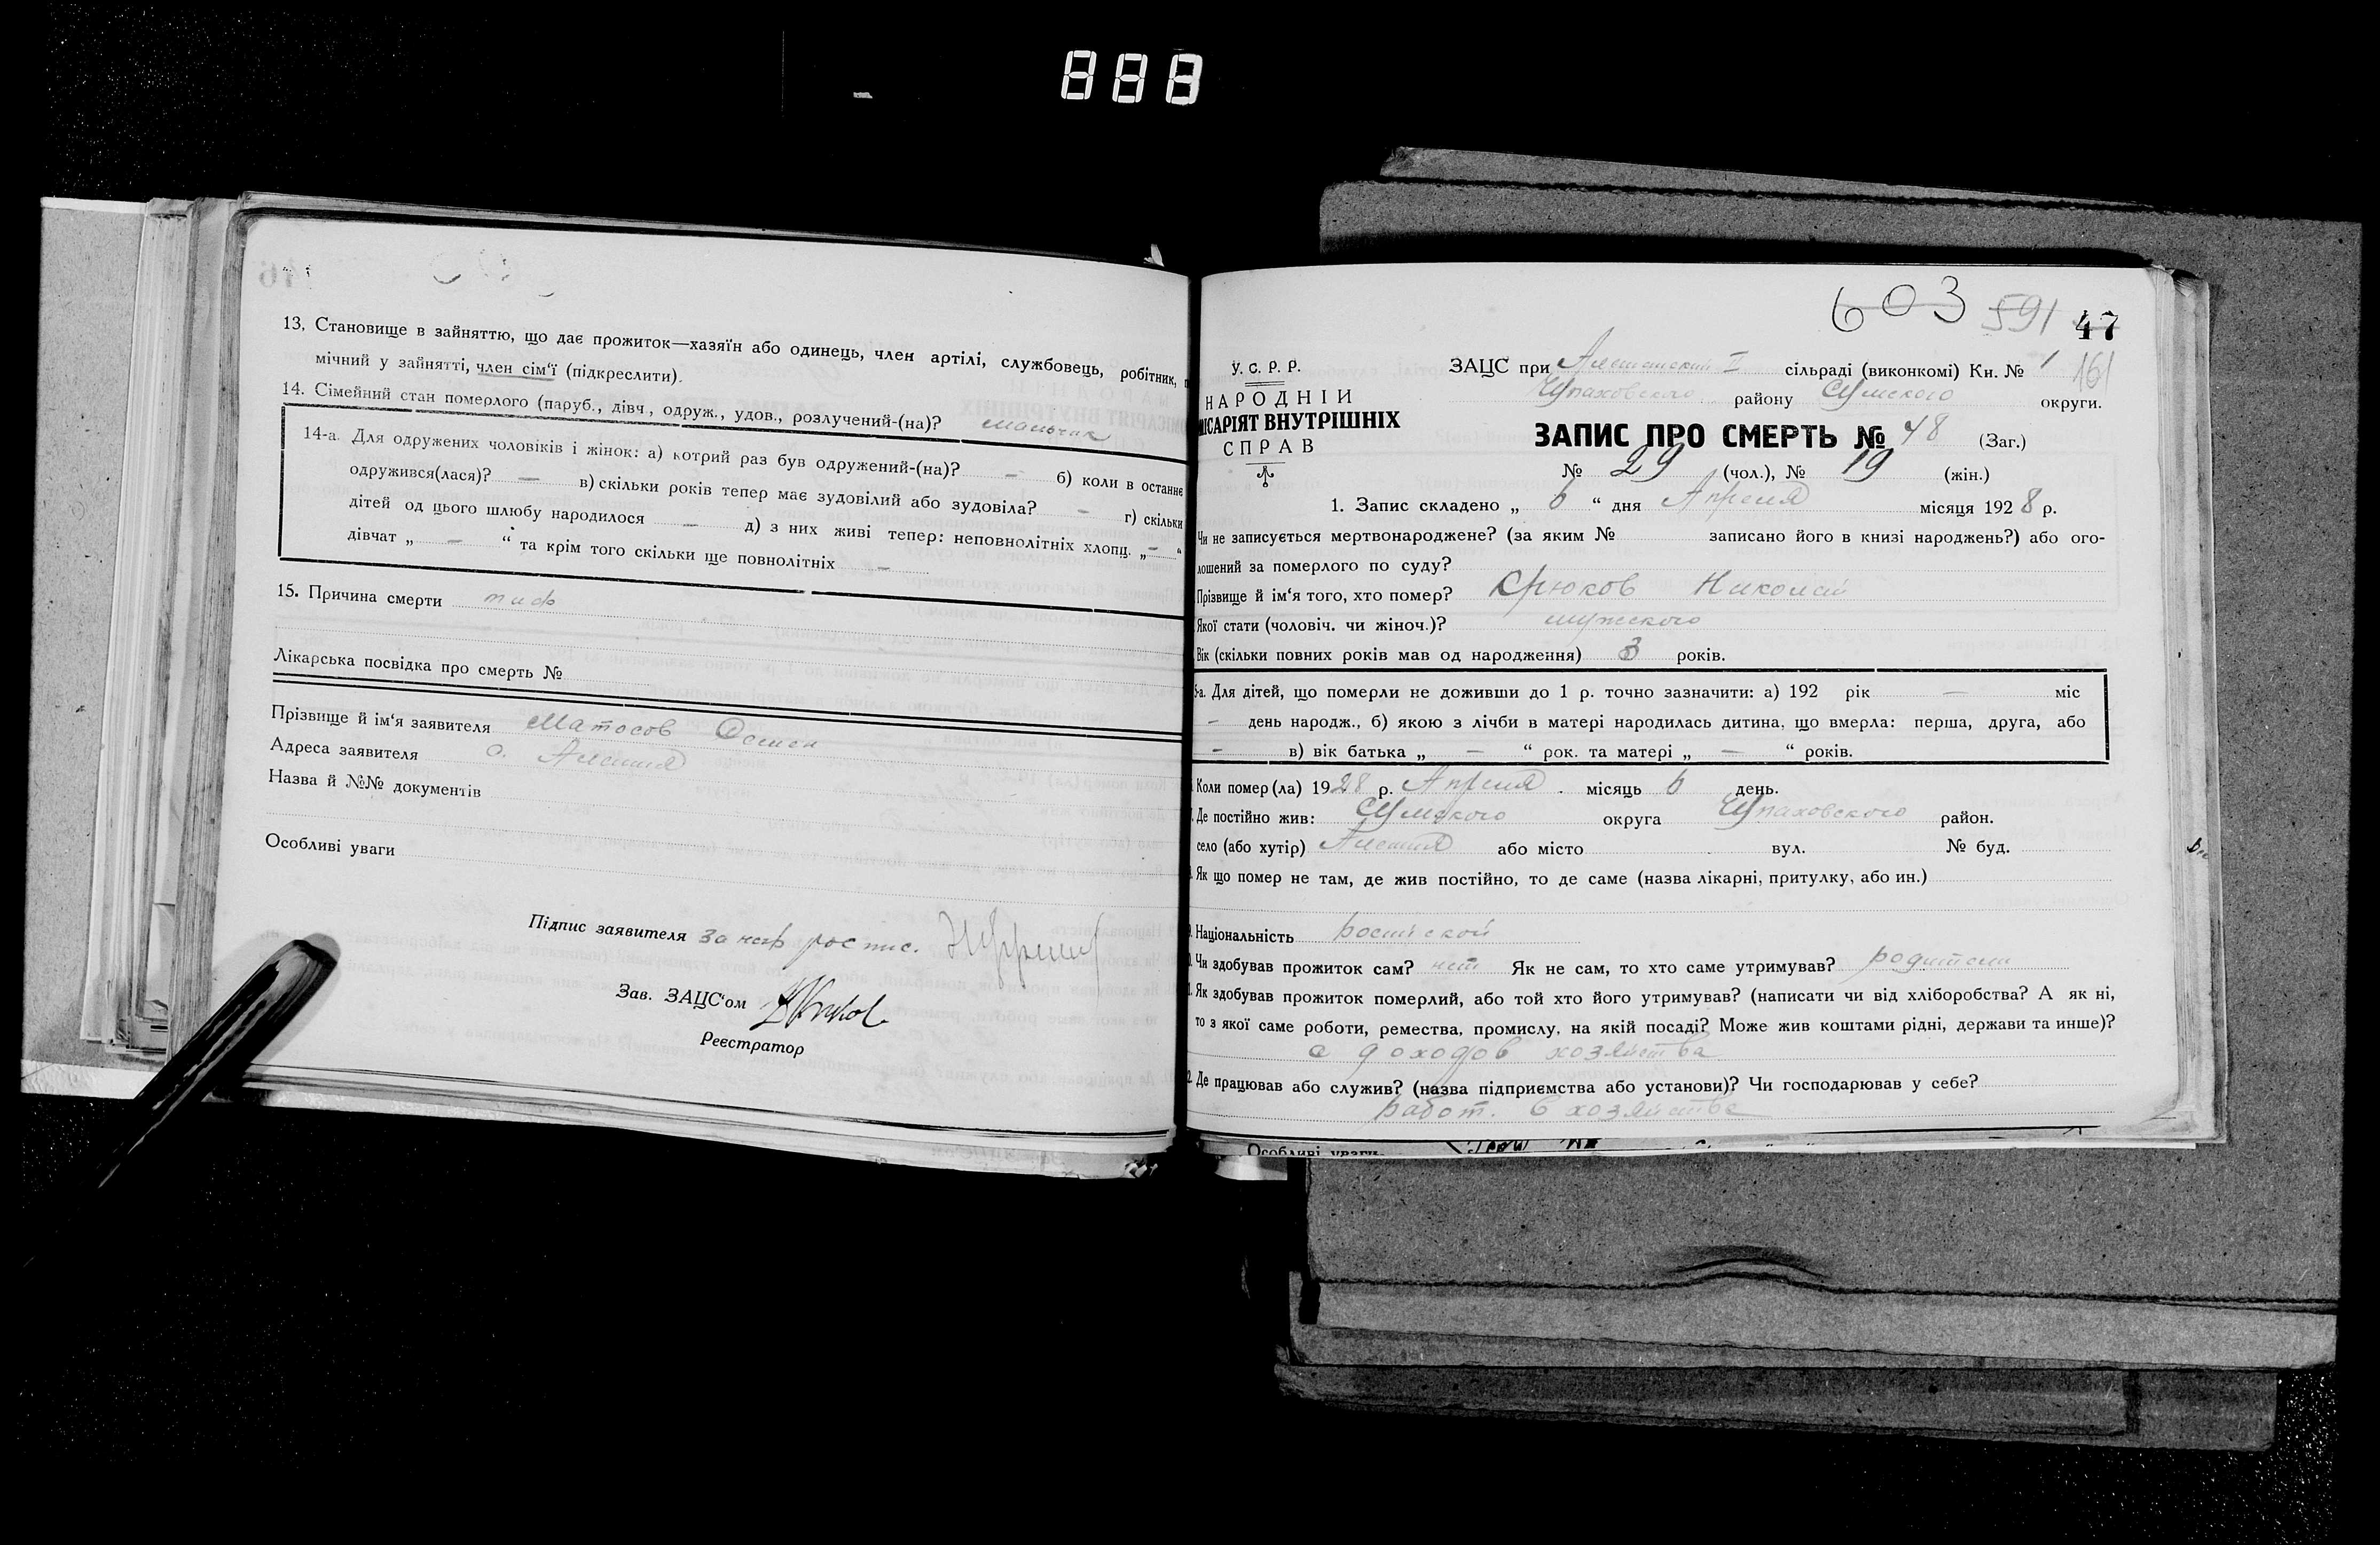 888
13. Становище в зайняттю, що дає прожиток—хазяїн або одинець, член артілі, службовець, робітник,
мічний у зайнятті, член сім'ї (підкреслити).
14. Сімейний стан померлого (паруб., дівч., одруж., удов., розлучений-(на)? мальчик
14-а. Для одружених чоловіків і жінок: а) котрий раз був одружений-(на)? — б) коли в останнє
одружився(лася)? — в) скільки років тепер має зудовілий або зудовіла? — г) скільки
дітей од цього шлюбу народилося — д) з них живі тепер: неповнолітніх хлопц. „—“
дівчат „ — “ та крім того скільки ще повнолітніх —
15. Причина смерти тиф
Лікарська посвідка про смерть №
Прізвище й ім'я заявителя Матосов
Адреса заявителя с. Алешня
Назва й №№ документів
Особливі уваги
Підпис заявителя за негр роспис.
Зав. ЗАЦС'ом
Реєстратор
603 591 47
161
У. С. Р. Р.
НАРОДНІЙ
ІСАРІЯТ ВНУТРІШНІХ
СПРАВ
ЗАЦС при Алешанский II сільраді (виконкомі) Кн. № 1
району Сумского округи.
ЗАПИС ПРО СМЕРТЬ № 48 (Заг.)
№ 29 (чол.), № 19 (жін.)
1. Запис складено „ 6 “ дня Апреля місяця 1928 р.
Чи не записується мертвонароджене? (за яким № записано його в книзі народжень?) або ого-
лошений за померлого по суду?
Прізвище й ім'я того, хто помер? Крюков Николай
Якої стати (чоловіч. чи жіноч.)? мужского
Вік (скільки повних років мав од народження) 3 років.
5-а. Для дітей, що померли не доживши до 1 р. точно зазначити: а) 192 рік — міс
— день народж., б) якою з лічби в матері народилась дитина, що вмерла: перша, друга, або
— в) вік батька „ — “ рок. та матері „ — “ років.
Коли помер(ла) 1928 р. Апреля місяць 6 день.
Де постійно жив: Сумского округа район.
село (або хутір) Алешня або місто вул. № буд.
Як що помер не там, де жив постійно, то де саме (назва лікарні, притулку, або ин.)
Національність
Чи здобував прожиток сам? нет Як не сам, то хто саме утримував? родители
Як здобував прожиток померлий, або той хто його утримував? (написати чи від хліборобства? А як ні,
то з якої саме роботи, ремества, промислу, на якій посаді? Може жив коштами рідні, держави та инше)?
с доходов хозяйства
2. Де працював або служив? (назва підприємства або установи)? Чи господарював у себе?
работ. в хозяйстве
Особливі уваги